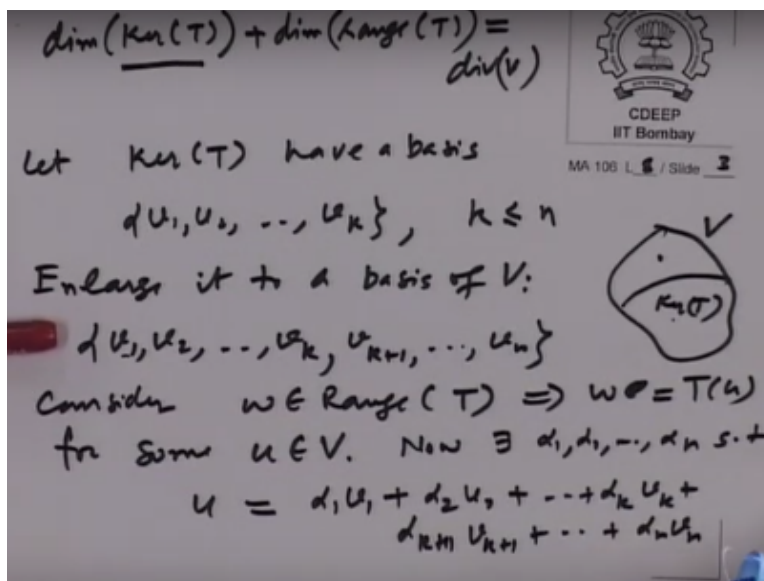 dim(Ker(T)) + dim(Range(T)) =
div(V)
CDEEP
IIT Bombay
MA 106 L 8 / Slide 3
Let Ker(T) have a basis
{v₁, v₂, .., vₖ}, k ≤ n
Enlarge it to a basis of V:
V
Ker(T)
{v₁, v₂, .., vₖ, vₖ₊₁, .., vₙ}
Consider w ∈ Range(T) ⇒ w = T(u)
for some u ∈ V. Now ∃ α₁, α₂, .., αₙ s.t
u = α₁v₁ + α₂v₂ + ·· + αₖvₖ +
αₖ₊₁vₖ₊₁ + ·· + αₙvₙ